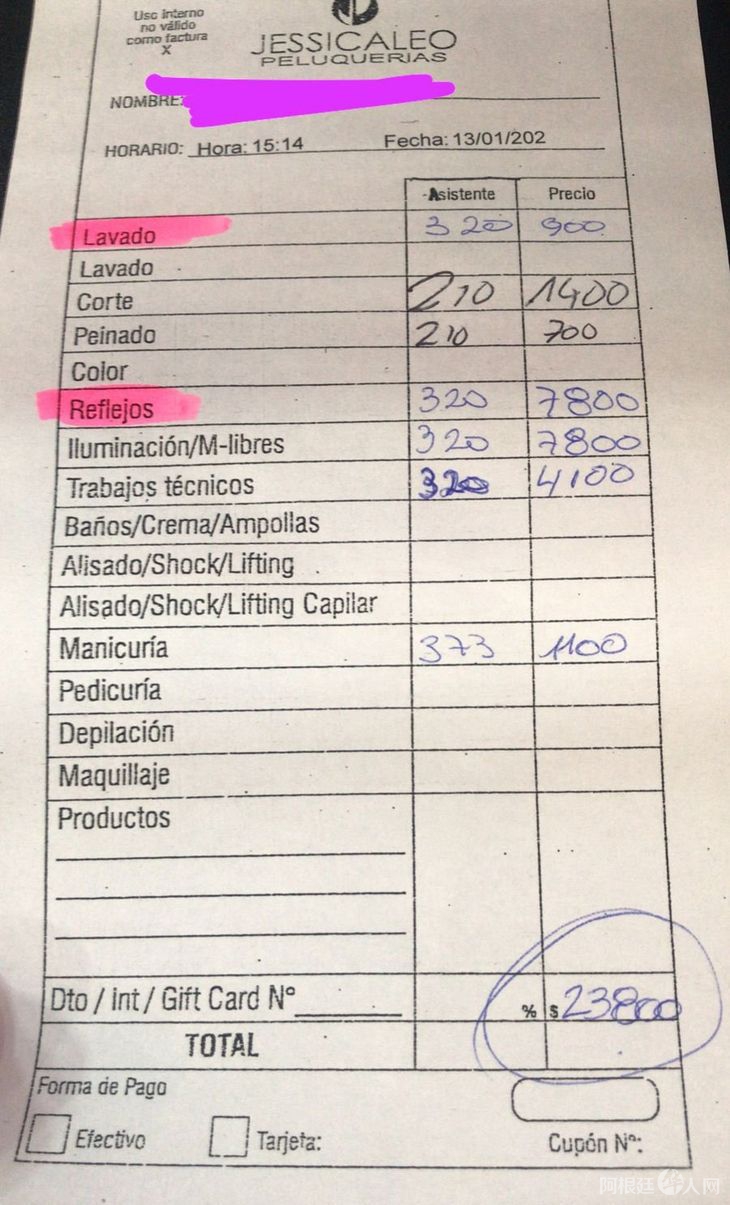 Uso interno
no válido
como factura
X
JESSICALEO
PELUQUERIAS
NOMBRE:
HORARIO: Hora: 15:14 Fecha: 13/01/202
Asistente Precio
Lavado 320 900
Lavado
Corte 210 1400
Peinado 210 700
Color
Reflejos 320 7800
Iluminación/M-libres 320 7800
Trabajos técnicos 320 4100
Baños/Crema/Ampollas
Alisado/Shock/Lifting
Alisado/Shock/Lifting Capilar
Manicuría 373 1100
Pedicuría
Depilación
Maquillaje
Productos
Dto / Int / Gift Card N° % $ 23800
TOTAL
Forma de Pago
Efectivo Tarjeta: Cupón N°:
阿根廷华人网